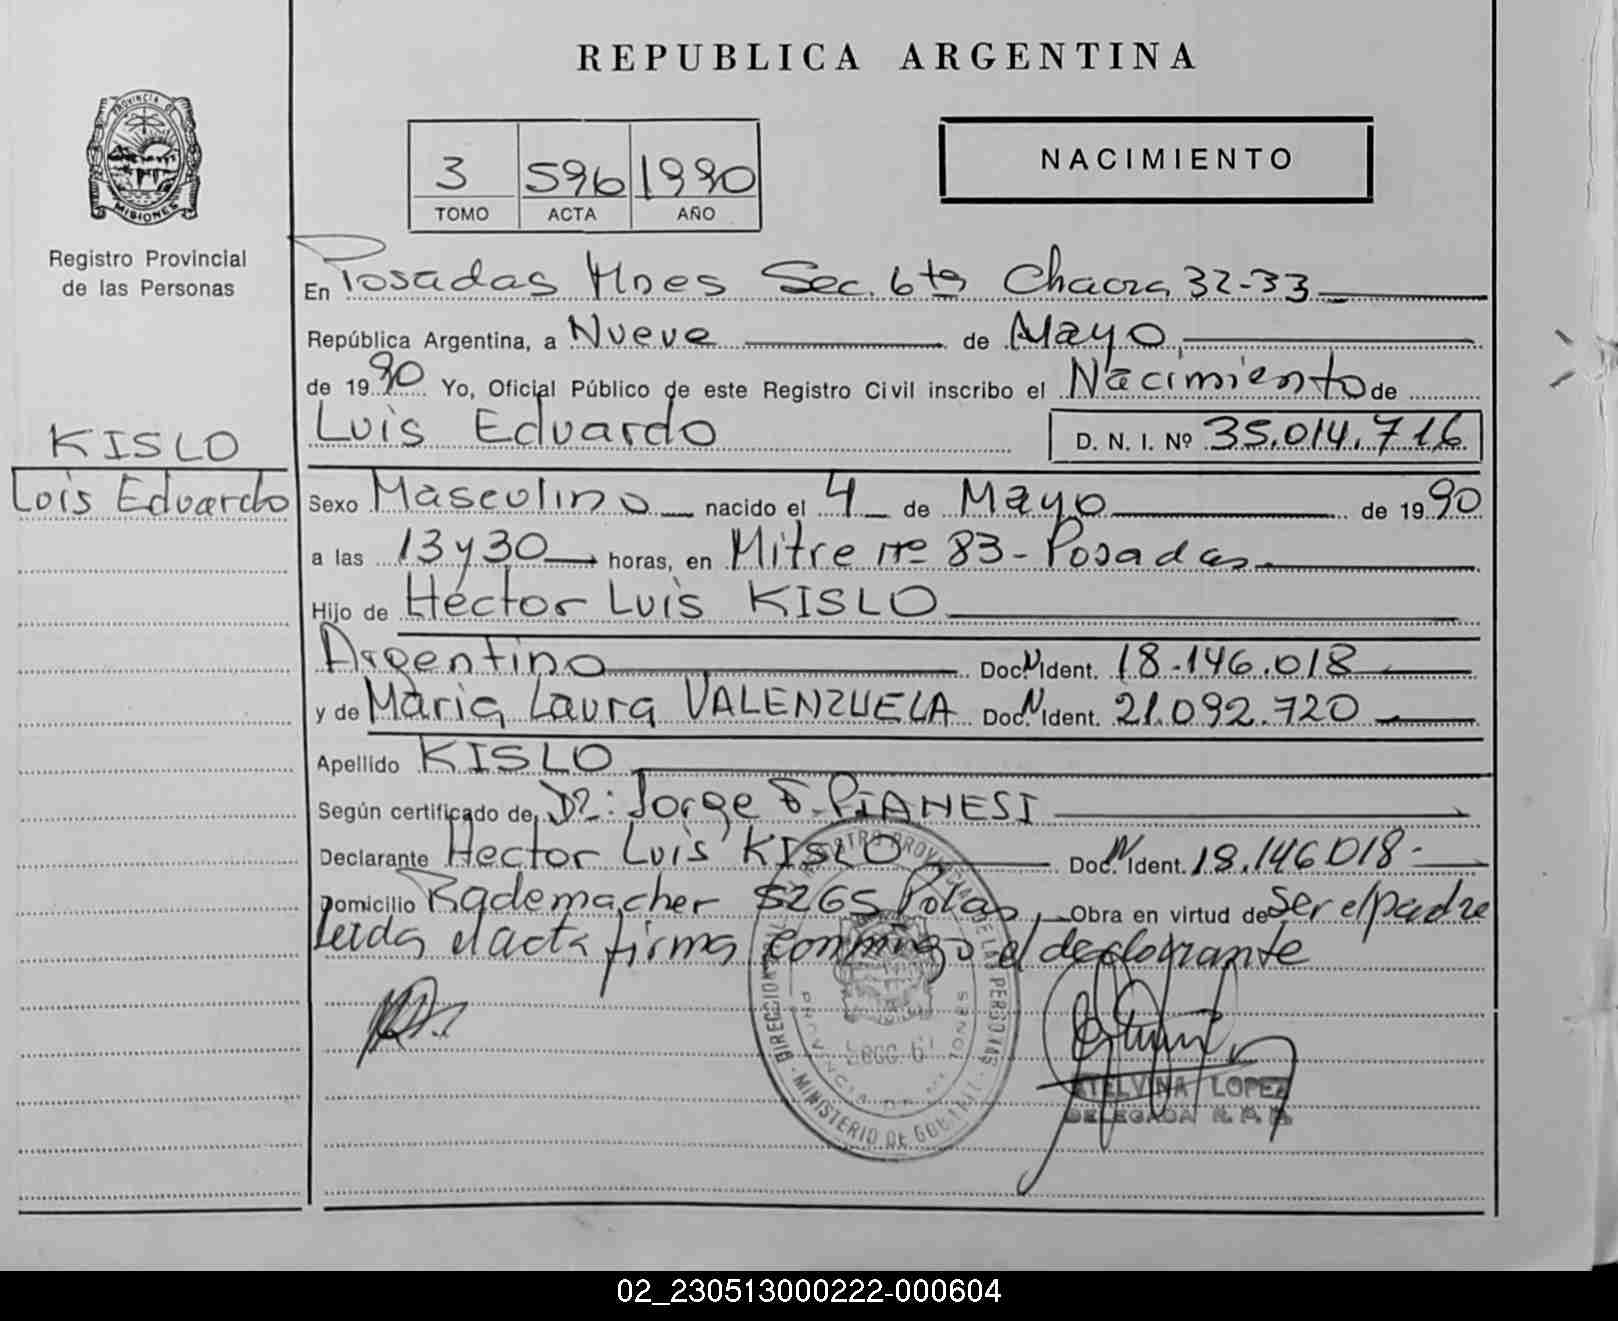 REPUBLICA ARGENTINA
PROVINCIA DE
MISIONES
Registro Provincial
de las Personas
3 596 1990
TOMO ACTA AÑO
NACIMIENTO
En Posadas Mnes Sec. 6ta Chacra 32-33
República Argentina, a Nueve de Mayo,
de 1990 Yo, Oficial Público de este Registro Civil inscribo el Nacimiento de
Luis Eduardo D. N. I. Nº 35.014.716
KISLO
Luis Eduardo
Sexo Masculino nacido el 4 de Mayo de 1990
a las 13 y 30 horas, en Mitre Nº 83 - Posadas
Hijo de Héctor Luis KISLO
Argentino Doc. N Ident. 18.146.018
y de María Laura VALENZUELA Doc. N Ident. 21.092.720
Apellido KISLO
Según certificado de Dr: Jorge F. PIANESI
Declarante Hector Luis KISLO Doc. N Ident. 18.146018.
Domicilio Rademacher 5265 Pdas, Obra en virtud de Ser el padre
Leida el acta firma conmigo el declarante
REGISTRO PROVINCIAL DE LAS PERSONAS
DIRECCION
MINISTERIO DE GOBIERNO
PROVINCIA DE MISIONES
ETELVINA LOPEZ
DELEGADA R. P. P.
02_230513000222-000604